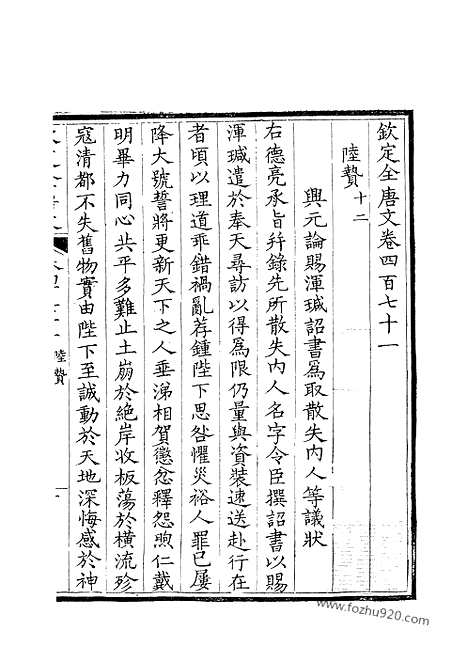 欽定全唐文卷四百七十一
陸贄十二
興元論賜渾瑊詔書爲取散失内人等議狀
右德亮承旨幷錄先所散失内人名字令臣撰詔書以賜
渾瑊遣於奉天尋訪以得爲限仍量與資裝速送赴行在
者頃以理道乖錯禍亂荐鍾陛下思咎懼災裕人罪已屢
降大號誓將更新天下之人垂涕相賀懲忿釋怨煦仁戴
明畢力同心共平多難止土崩於絶岸收板蕩於橫流殄
寇清都不失舊物實由陛下至誠動於天地深悔感於神
陸贄
一
www.fozhu920.com